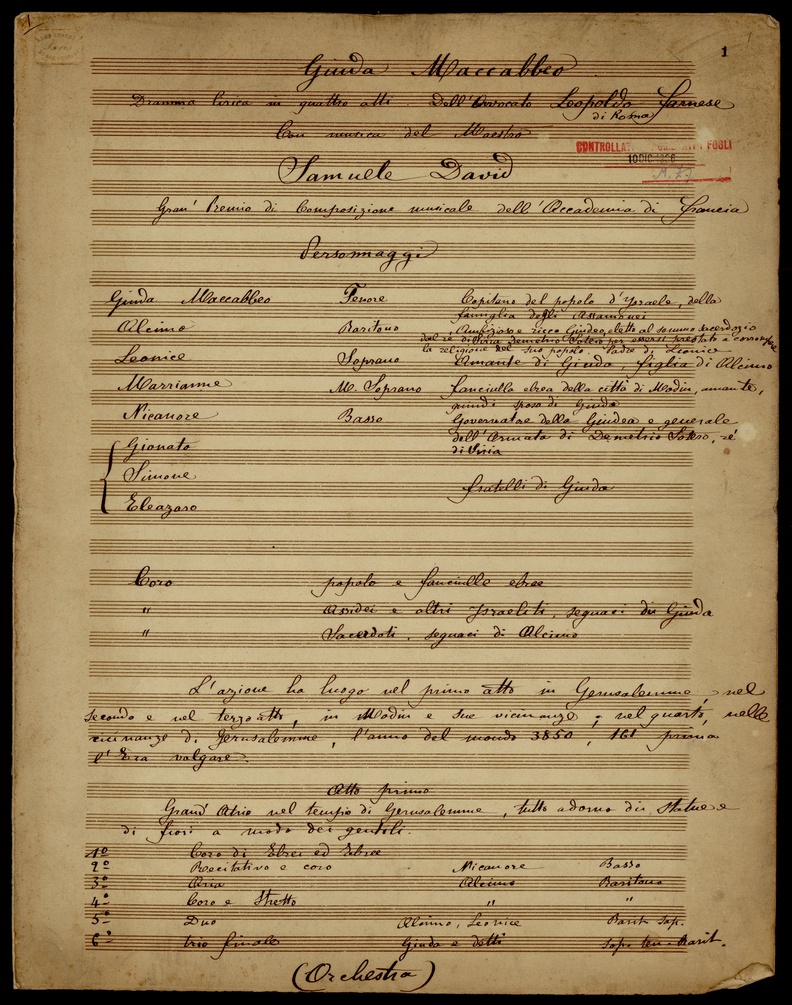 1
Giuda Maccabbeo
Dramma lirico in quattro atti. Dell'Avvocato Leopoldo Farnese
di Roma
Con musica del Maestro
CONTROLLATI FOGLI
10 DIC 19
Samuele David
Gran' Premio di Composizione musicale dell'Accademia di Francia
Personnaggi
Giuda Maccabbeo Tenore Capitano del popolo d'Ysraele, della
famiglia degli Assamonei
Alcimo Baritono Ambizioso e ricco Giudeo, eletto al sommo sacerdozio
dal re di Siria Demetrio Sotero per essersi prestato a corrompere
la religione del suo popolo. Padre di Leonice
Leonice Soprano Amante di Giuda, figlia di Alcimo
Marrianne M. Soprano fanciulla ebrea della città di Modin, amante,
quindi sposa di Giuda
Nicanore Basso Governatore della Giudea e generale
dell'Armata di Demetrio Sotero, ré
di Siria
Gionato
Simone
fratelli di Giuda
Eleazaro
Coro popolo e fanciulle ebree
" Assidei e altri Ysraeliti, seguaci di Giuda
" Sacerdoti, seguaci di Alcimo
L'azione ha luogo nel primo atto in Gerusalemme, nel
secondo e nel terzo atto, in Modin e sue vicinanze; nel quarto, nelle
vicinanze di Gerusalemme, l'anno del mondo 3850, 161 prima
l'Era volgare.
Atto primo
Grand' Atrio nel tempio di Gerusalemme, tutto adorno di statue e
di fiori a modo dei gentili.
1º Coro di Ebrei ed Ebree
2º Recitativo e coro Nicanore Basso
3º Aria Alcimo Baritono
4º Coro e Stretto " "
5º Duo Alcimo, Leonice Barit Sop.
6º trio finale Giuda e detti Sop. ten. Barit.
(Orchestra)